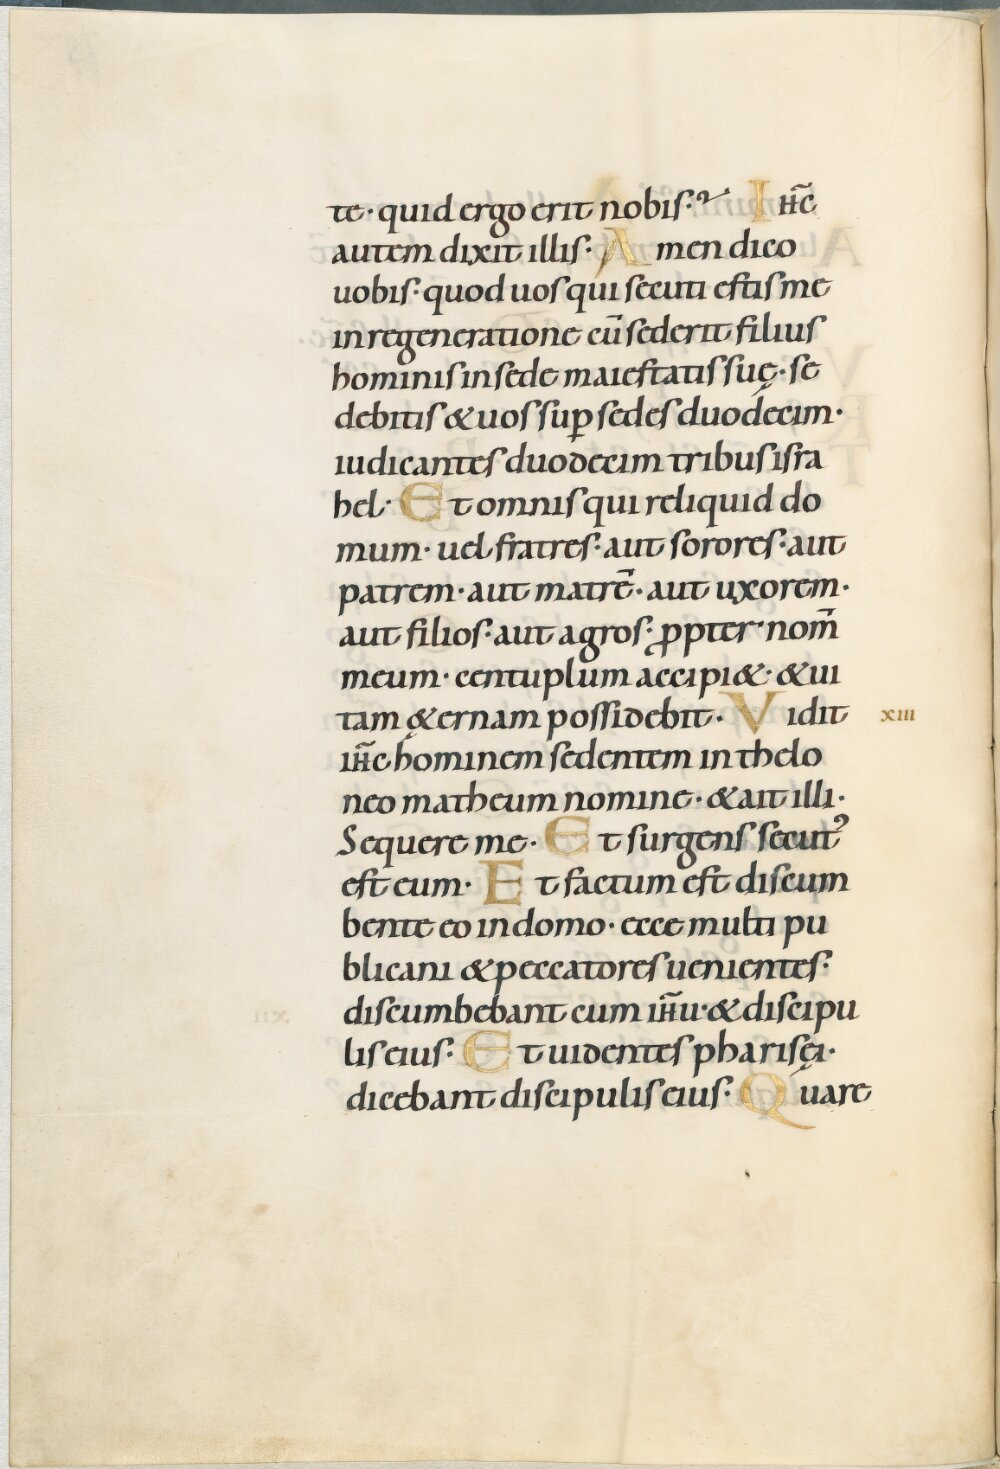 te· quid ergo erit nobis·? Ihc̄
autem dixit illis· Amen dico
uobis· quod uos qui secuti estis me
in regeneratione cū sederit filius
hominis in sede maiestatis suę· se
debitis & uos sup̄ sedes duodecim·
iudicantes duodecim tribus isra
hel· Et omnis qui reliquid do
mum· uel fratres· aut sorores· aut
patrem· aut matrē· aut uxorem·
aut filios· aut agros· ꝓpter nom̄
meum· centuplum accipi&· & ui
tam ę&ernam possidebit· Vidit xiii
ih̄c hominem sedentem in thelo
neo matheum nomine· & ait illi·
Sequere me· Et surgens secutꝰ
est eum· Et factum est discum
bente eo in domo· ecce multi pu
blicani & peccatores uenientes·
discumbebant cum ih̄u· & discipu
lis eius· Et uidentes pharisęi·
dicebant discipulis eius· Quare